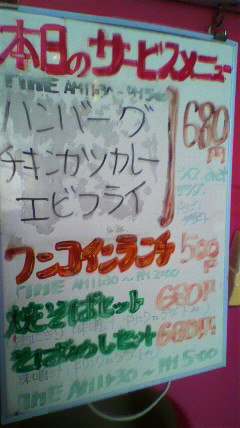 本日のサービスメニュー
TIME AM11:30~PM5:00
ハンバーグ
チキンカツカレー
エビフライ
680円
ワンコインランチ 500円
TIME AM11:30~PM2:00
焼そばセット 680円
そばめしセット 680円
TIME AM11:30~PM5:00